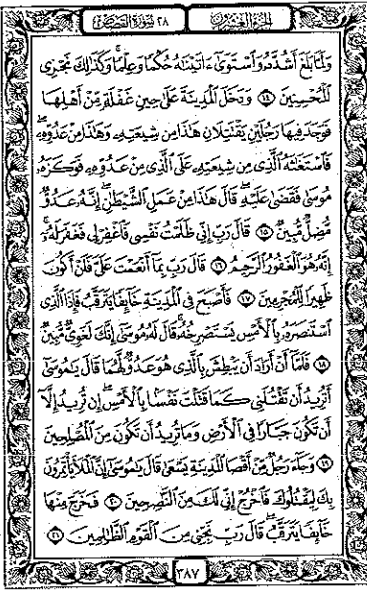 الجزء العشرون
٢٨ سورة القصص
وَلَمَّا بَلَغَ أَشُدَّهُۥ وَٱسْتَوَىٰٓ ءَاتَيْنَٰهُ حُكْمًا وَعِلْمًا ۚ وَكَذَٰلِكَ نَجْزِى
ٱلْمُحْسِنِينَ ١٤ وَدَخَلَ ٱلْمَدِينَةَ عَلَىٰ حِينِ غَفْلَةٍ مِّنْ أَهْلِهَا
فَوَجَدَ فِيهَا رَجُلَيْنِ يَقْتَتِلَانِ هَٰذَا مِن شِيعَتِهِۦ وَهَٰذَا مِنْ عَدُوِّهِۦ ۖ
فَٱسْتَغَٰثَهُ ٱلَّذِى مِن شِيعَتِهِۦ عَلَى ٱلَّذِى مِنْ عَدُوِّهِۦ فَوَكَزَهُۥ
مُوسَىٰ فَقَضَىٰ عَلَيْهِ ۖ قَالَ هَٰذَا مِنْ عَمَلِ ٱلشَّيْطَٰنِ ۖ إِنَّهُۥ عَدُوٌّ
مُّضِلٌّ مُّبِينٌ ١٥ قَالَ رَبِّ إِنِّى ظَلَمْتُ نَفْسِى فَٱغْفِرْ لِى فَغَفَرَ لَهُۥٓ ۚ
إِنَّهُۥ هُوَ ٱلْغَفُورُ ٱلرَّحِيمُ ١٦ قَالَ رَبِّ بِمَآ أَنْعَمْتَ عَلَىَّ فَلَنْ أَكُونَ
ظَهِيرًا لِّلْمُجْرِمِينَ ١٧ فَأَصْبَحَ فِى ٱلْمَدِينَةِ خَآئِفًا يَتَرَقَّبُ فَإِذَا ٱلَّذِى
ٱسْتَنصَرَهُۥ بِٱلْأَمْسِ يَسْتَصْرِخُهُۥ ۚ قَالَ لَهُۥ مُوسَىٰٓ إِنَّكَ لَغَوِىٌّ مُّبِينٌ
١٨ فَلَمَّآ أَنْ أَرَادَ أَن يَبْطِشَ بِٱلَّذِى هُوَ عَدُوٌّ لَّهُمَا قَالَ يَٰمُوسَىٰٓ
أَتُرِيدُ أَن تَقْتُلَنِى كَمَا قَتَلْتَ نَفْسًۢا بِٱلْأَمْسِ ۖ إِن تُرِيدُ إِلَّآ
أَن تَكُونَ جَبَّارًا فِى ٱلْأَرْضِ وَمَا تُرِيدُ أَن تَكُونَ مِنَ ٱلْمُصْلِحِينَ
١٩ وَجَآءَ رَجُلٌ مِّنْ أَقْصَا ٱلْمَدِينَةِ يَسْعَىٰ قَالَ يَٰمُوسَىٰٓ إِنَّ ٱلْمَلَأَ يَأْتَمِرُونَ
بِكَ لِيَقْتُلُوكَ فَٱخْرُجْ إِنِّى لَكَ مِنَ ٱلنَّٰصِحِينَ ٢٠ فَخَرَجَ مِنْهَا
خَآئِفًا يَتَرَقَّبُ ۖ قَالَ رَبِّ نَجِّنِى مِنَ ٱلْقَوْمِ ٱلظَّٰلِمِينَ ٢١
٣٨٧